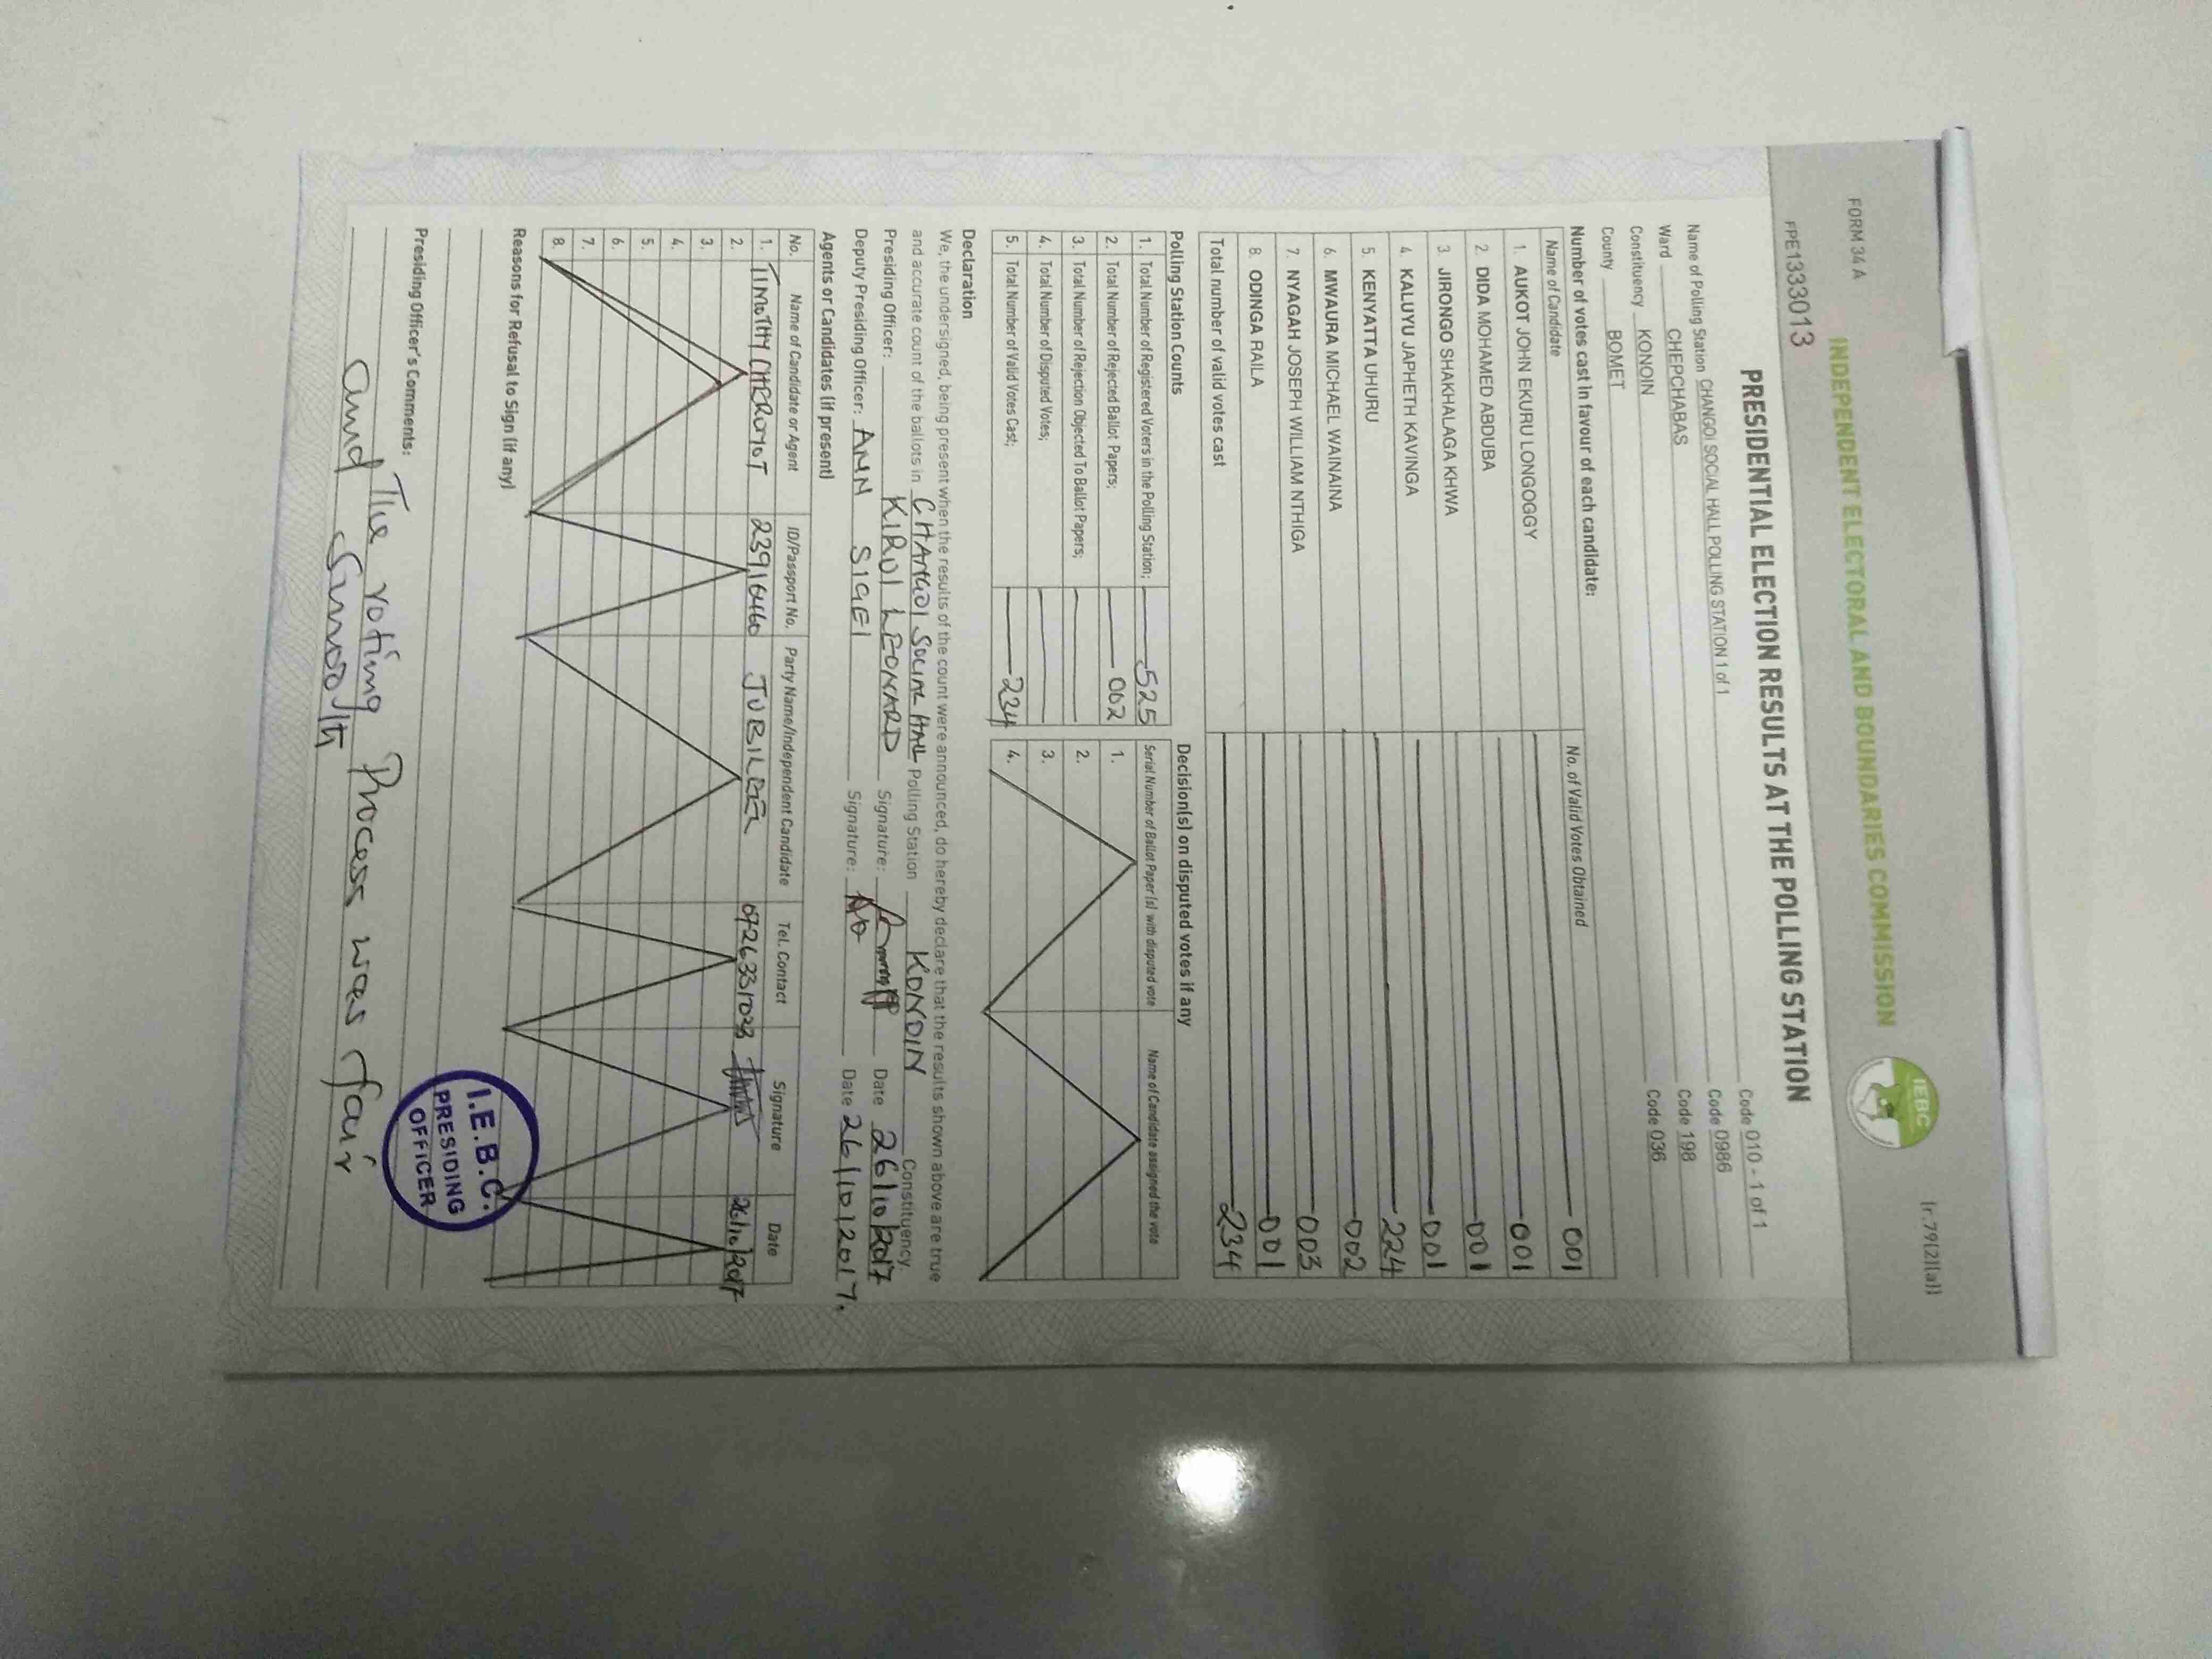 FORM 34 A
(r.79(2)(a))
INDEPENDENT ELECTORAL AND BOUNDARIES COMMISSION
IEBC
FPE1333013
PRESIDENTIAL ELECTION RESULTS AT THE POLLING STATION
Name of Polling Station CHANGOI SOCIAL HALL POLLING STATION 1 of 1 Code 010 - 1 of 1
Ward CHEPCHABAS Code 0986
Constituency KONOIN Code 198
County BOMET Code 036
Number of votes cast in favour of each candidate:
Name of Candidate No. of Valid Votes Obtained
1. AUKOT JOHN EKURU LONGOGGY 001
2. DIDA MOHAMED ABDUBA 001
3. JIRONGO SHAKHALAGA KHWA 001
4. KALUYU JAPHETH KAVINGA 001
5. KENYATTA UHURU 224
6. MWAURA MICHAEL WAINAINA 002
7. NYAGAH JOSEPH WILLIAM NTHIGA 003
8. ODINGA RAILA 001
Total number of valid votes cast 234
Polling Station Counts
1. Total Number of Registered Voters in the Polling Station; 525
2. Total Number of Rejected Ballot Papers; 002
3. Total Number of Rejection Objected To Ballot Papers;
4. Total Number of Disputed Votes;
5. Total Number of Valid Votes Cast; 234
Decision(s) on disputed votes if any
Serial Number of Ballot Paper (s) with disputed vote Name of Candidate assigned the vote
1.
2.
3.
4.
Declaration
We, the undersigned, being present when the results of the count were announced, do hereby declare that the results shown above are true
and accurate count of the ballots in CHANGOI SOCIAL HALL Polling Station KONOIN Constituency.
Presiding Officer: KIRUI LEONARD Signature: Date 26/10/2017
Deputy Presiding Officer: ANN SIGEI Signature: Date 26/10/2017.
Agents or Candidates (if present)
No. Name of Candidate or Agent ID/Passport No. Party Name/Independent Candidate Tel. Contact Signature Date
1. TIMOTHY CHERUIYOT JUBILEE 26/10/2017
2.
3.
4.
5.
6.
7.
8.
Reasons for Refusal to Sign (if any)
I.E.B.C.
PRESIDING
OFFICER
Presiding Officer's Comments:
The voting Process was fair
and Smooth